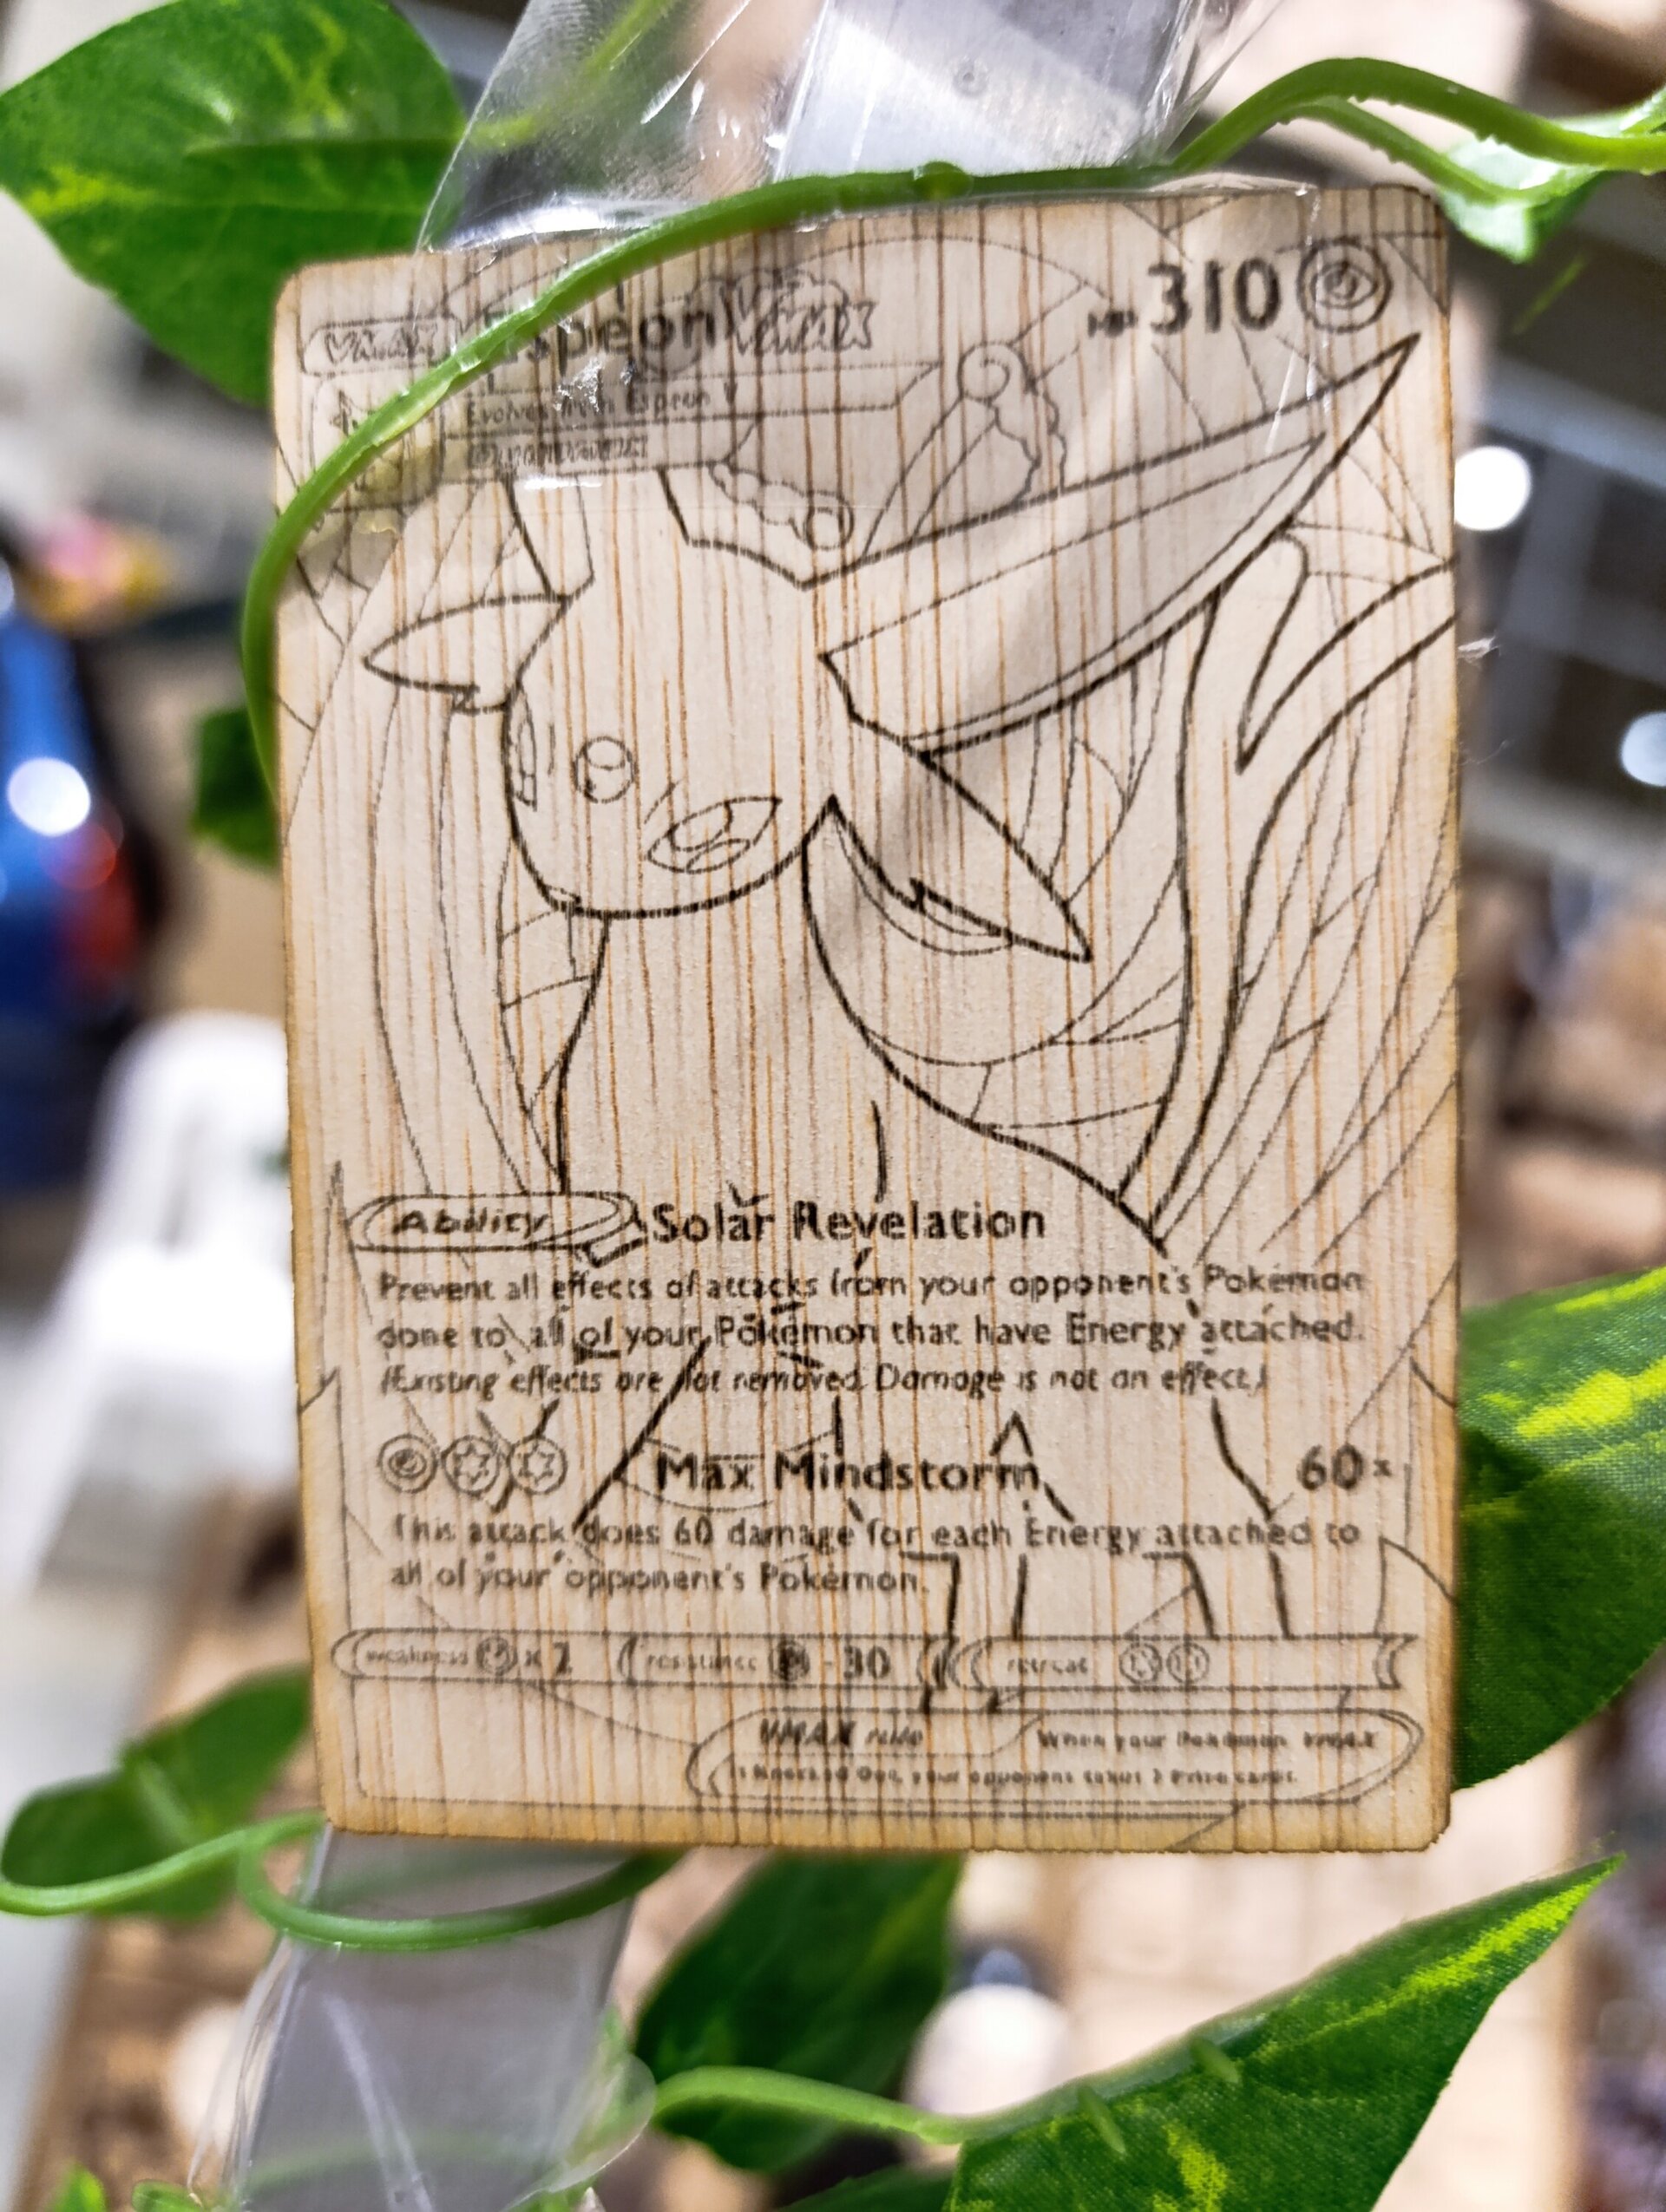 VMAX Espeon VMAX HP 310
Evolves from Espeon V
Ability Solar Revelation
Prevent all effects of attacks from your opponent's Pokémon
done to all of your Pokémon that have Energy attached.
(Existing effects are not removed. Damage is not an effect.)
Max Mindstorm 60×
This attack does 60 damage for each Energy attached to
all of your opponent's Pokémon.
weakness ×2 resistance -30 retreat
VMAX rule When your Pokémon VMAX
is Knocked Out, your opponent takes 3 Prize cards.